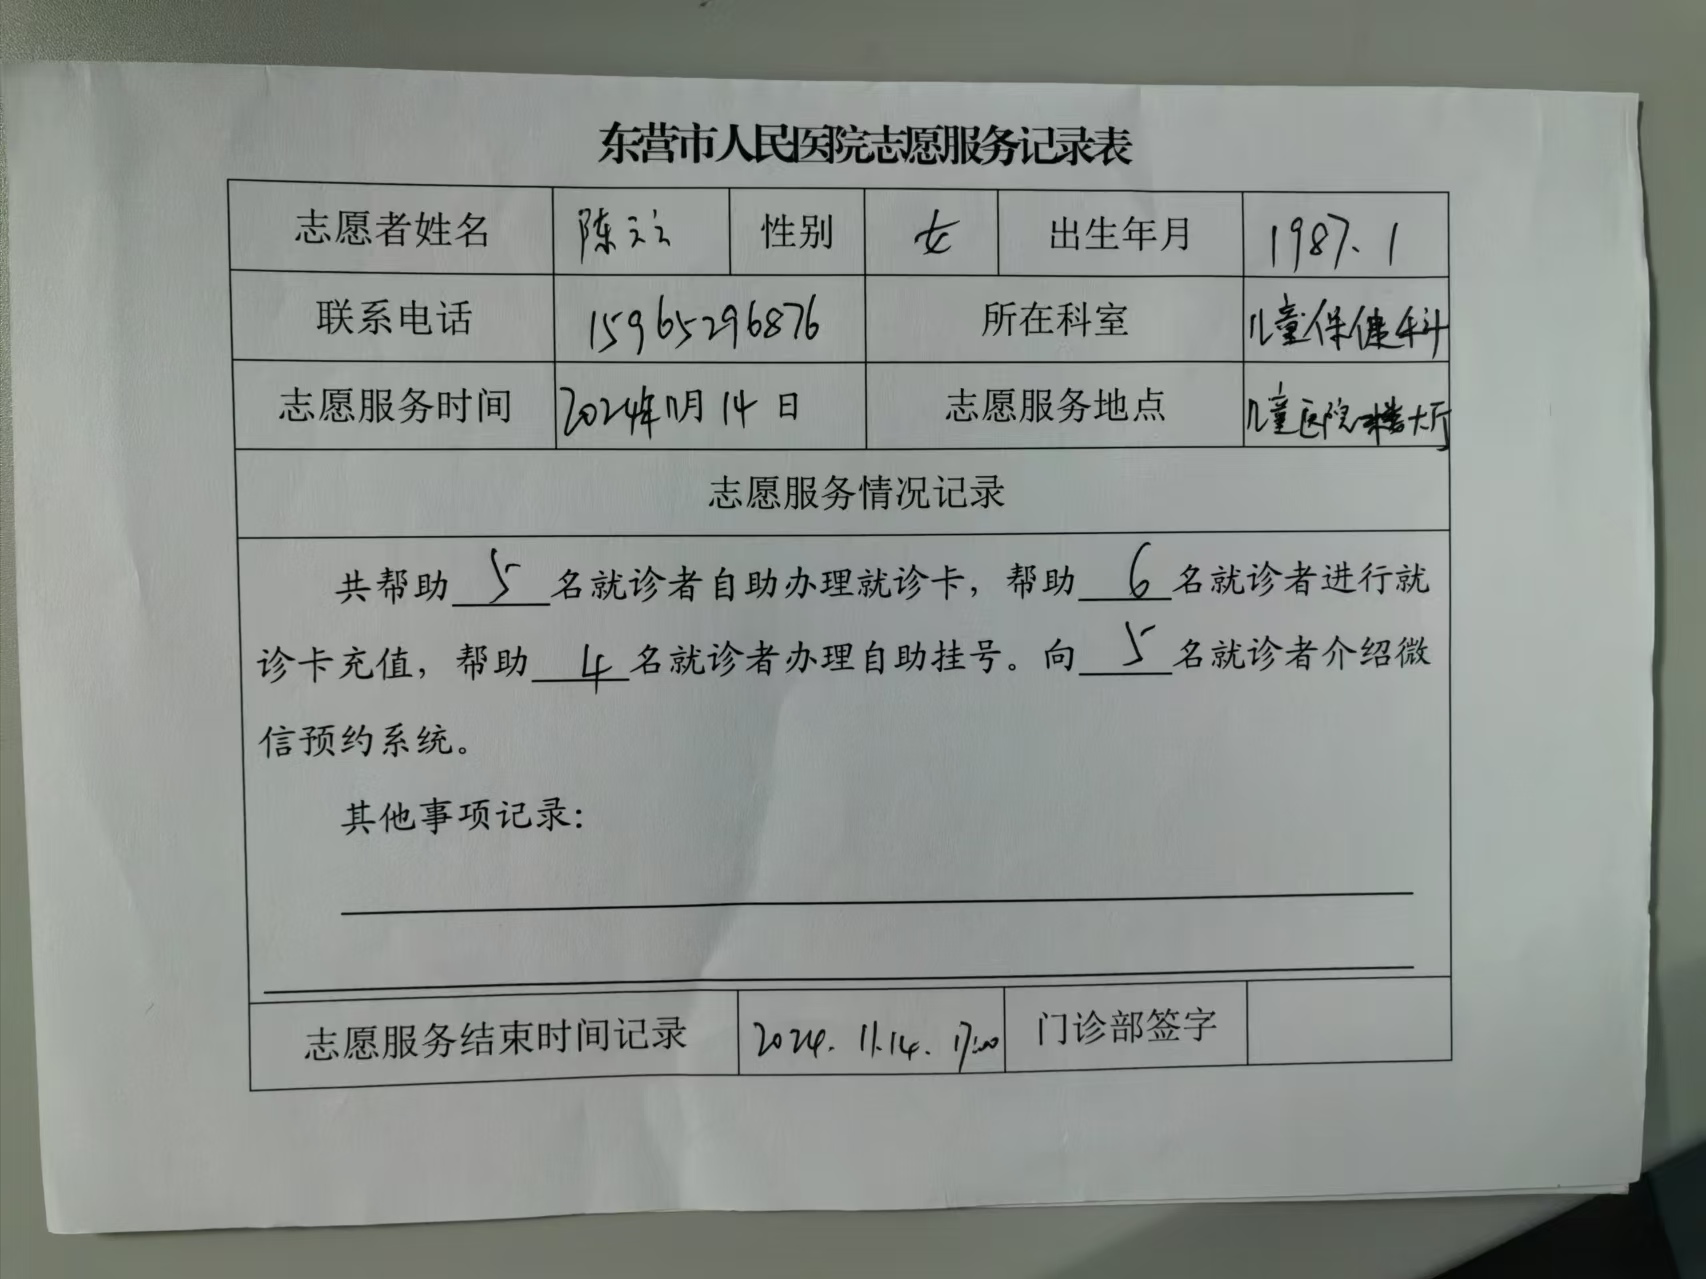 东营市人民医院志愿服务记录表
志愿者姓名 陈云云 性别 女 出生年月 1987.1
联系电话 15965296876 所在科室 儿童保健科
志愿服务时间 2024年11月14日 志愿服务地点 儿童医院一楼大厅
志愿服务情况记录
共帮助5名就诊者自助办理就诊卡，帮助6名就诊者进行就
诊卡充值，帮助4名就诊者办理自助挂号。向5名就诊者介绍微
信预约系统。
其他事项记录：
志愿服务结束时间记录 2024.11.14.17:00 门诊部签字